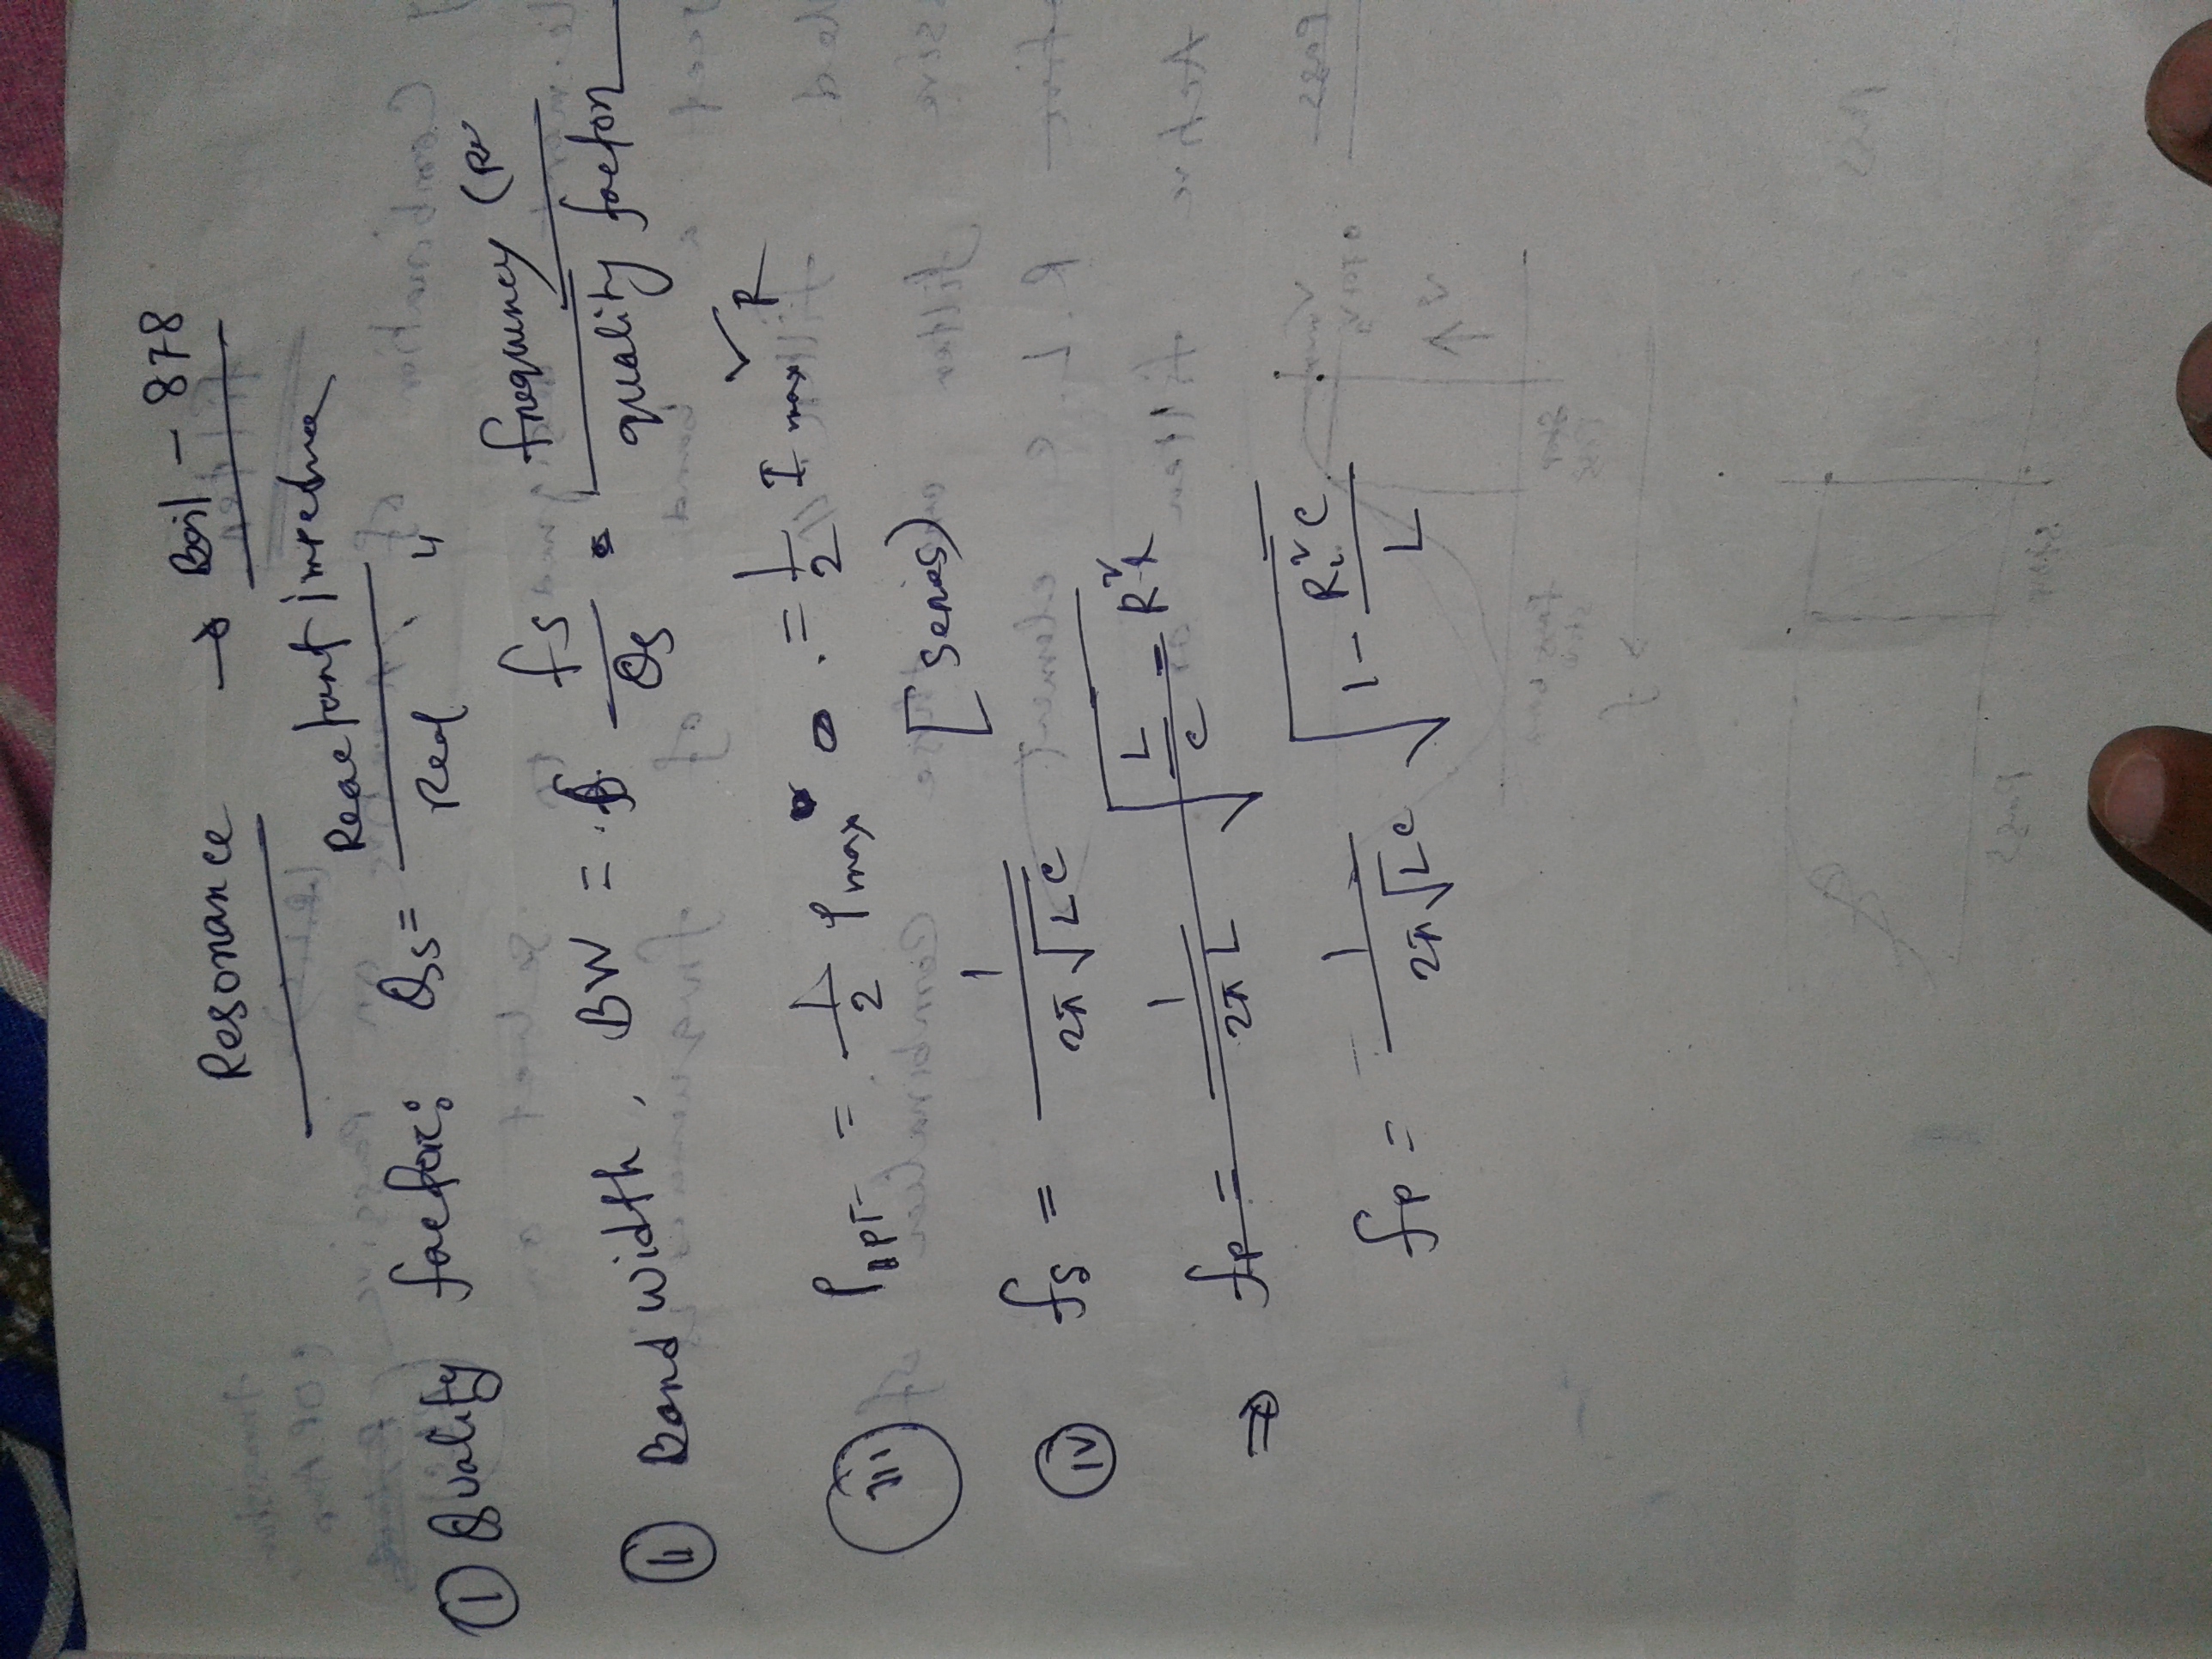 Resonance → Boil - 878
① Quality factor: Qs = Reactant impedna / Real "
② Band width, BW = fs / Qs = frequency (Re / quality factor
iii PHPF = 1/2 Pmax = 1/2 I max² R
[series)
iv fs = 1 / 2π√LC
⇒ fp = 1 / 2πL √(L/C - R²)
fp = 1 / 2π√LC √(1 - RL² C / L)